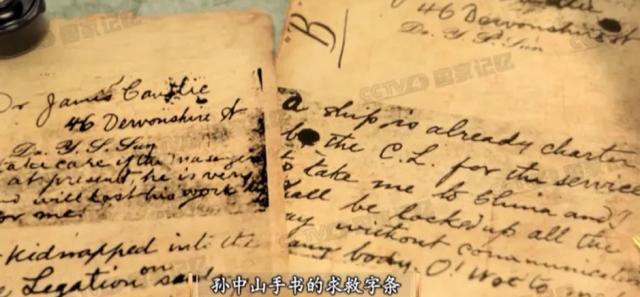 Dr James Cantlie
46 Devonshire St
Dr. Y. S. Sun
take care of the messenger
at present he is very
and will lost his work
for me.
kidnapped into the
Legation on
B
46 Devonshire St
Dr. Y. S. Sun
a ship is already charter
by the C. L. for the service
to take me to China and I
shall be locked up all the
way without communication
any body. O! Woe to me
CCTV4 国家记忆
孙中山手书的求救字条